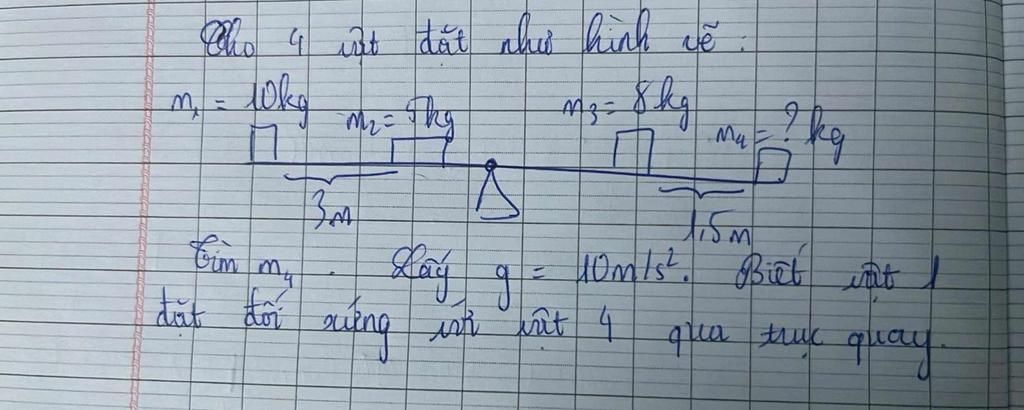 Cho 4 vật đặt như hình vẽ :
m₁ = 10kg m₂ = 5kg m₃ = 8kg m₄ = ? kg
3m 1,5m
Tìm m₄ . Lấy g = 10m/s². Biết vật 1
đặt đối xứng với vật 4 qua trục quay.